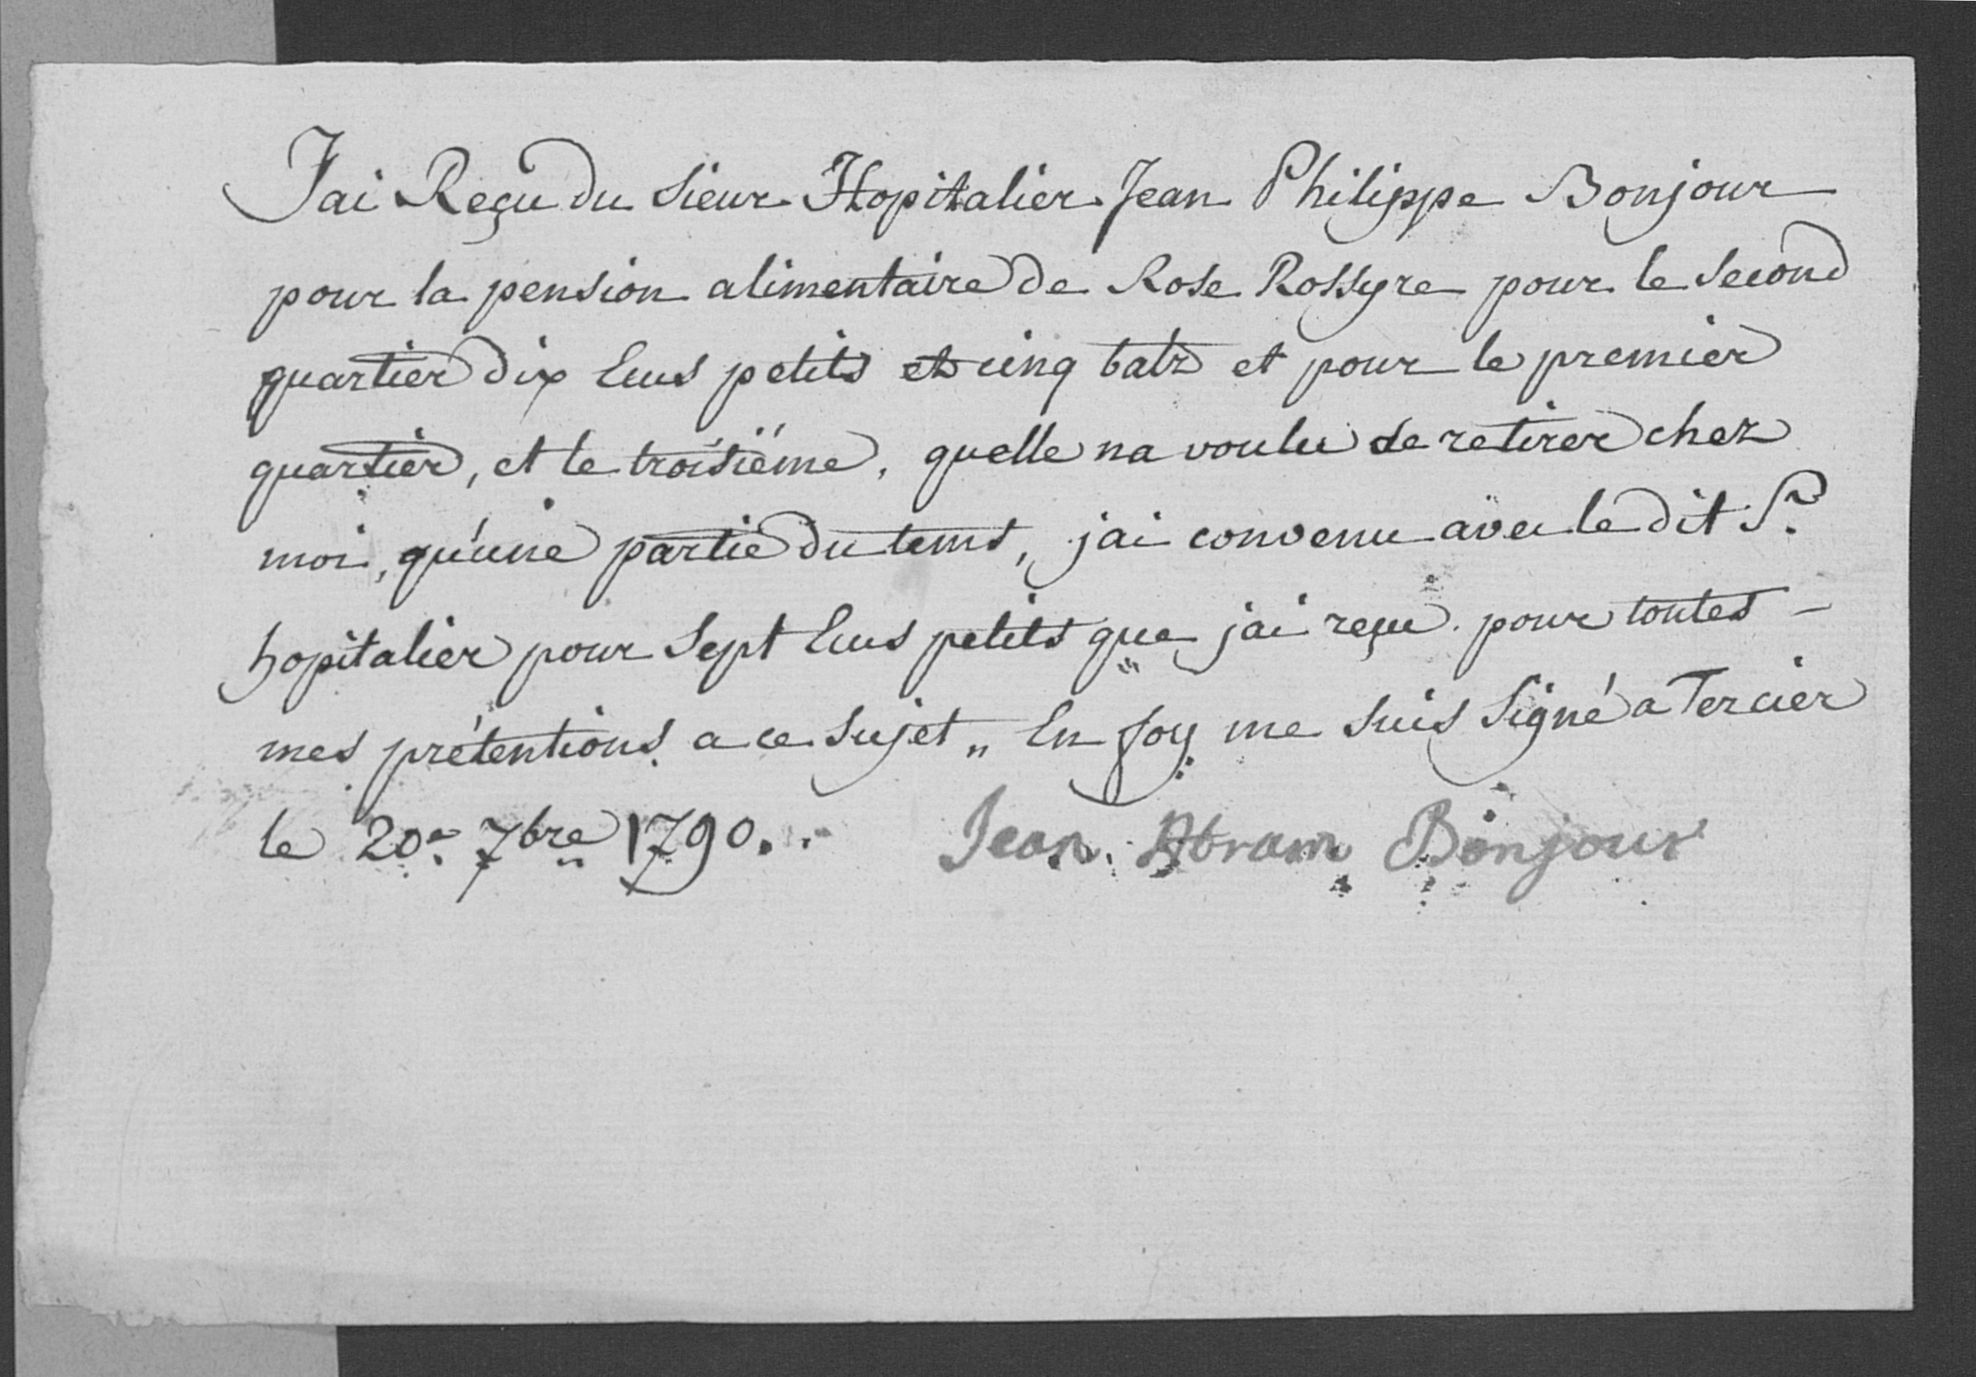 Jai Reçu du Sieur Hopitalier Jean Philippe Bonjour
pour la pension alimentaire de Rose Rossyre pour le Second
quartier dix Ecus petits et cinq batz et pour le premier
quartier, et le troisiéme, quelle na voulu se retirer chez
moi, qu'une partie du tems, jai convenu avec le dit Sr.
hopitalier pour Sept Ecus petits que jai reçu pour toutes -
mes prétentions a ce Sujet „ En foy me suis Signé a Tercier
le 20e. 7bre 1790.
Jean Abram Bonjour